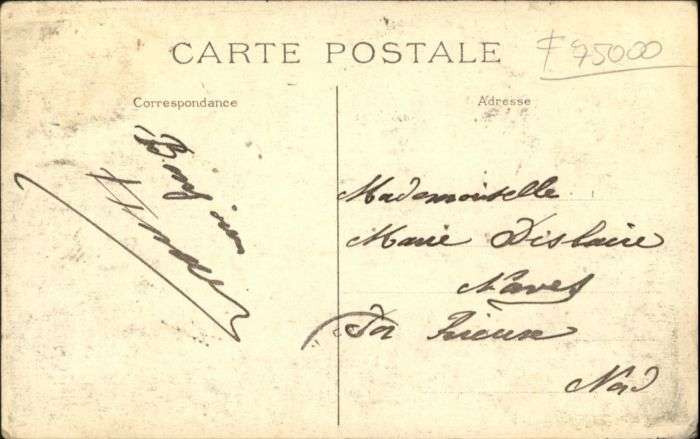 CARTE POSTALE
F 75000
Correspondance
Adresse
Bonjour
Mademoiselle
Marie Dislaire
Naves
Par Rieux
Nord